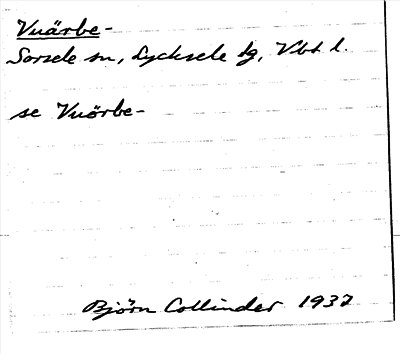 Vuärbe-
Sorsele sn, Lycksele lg, Vbt l.
se Vuörbe-
Björn Collinder 1937